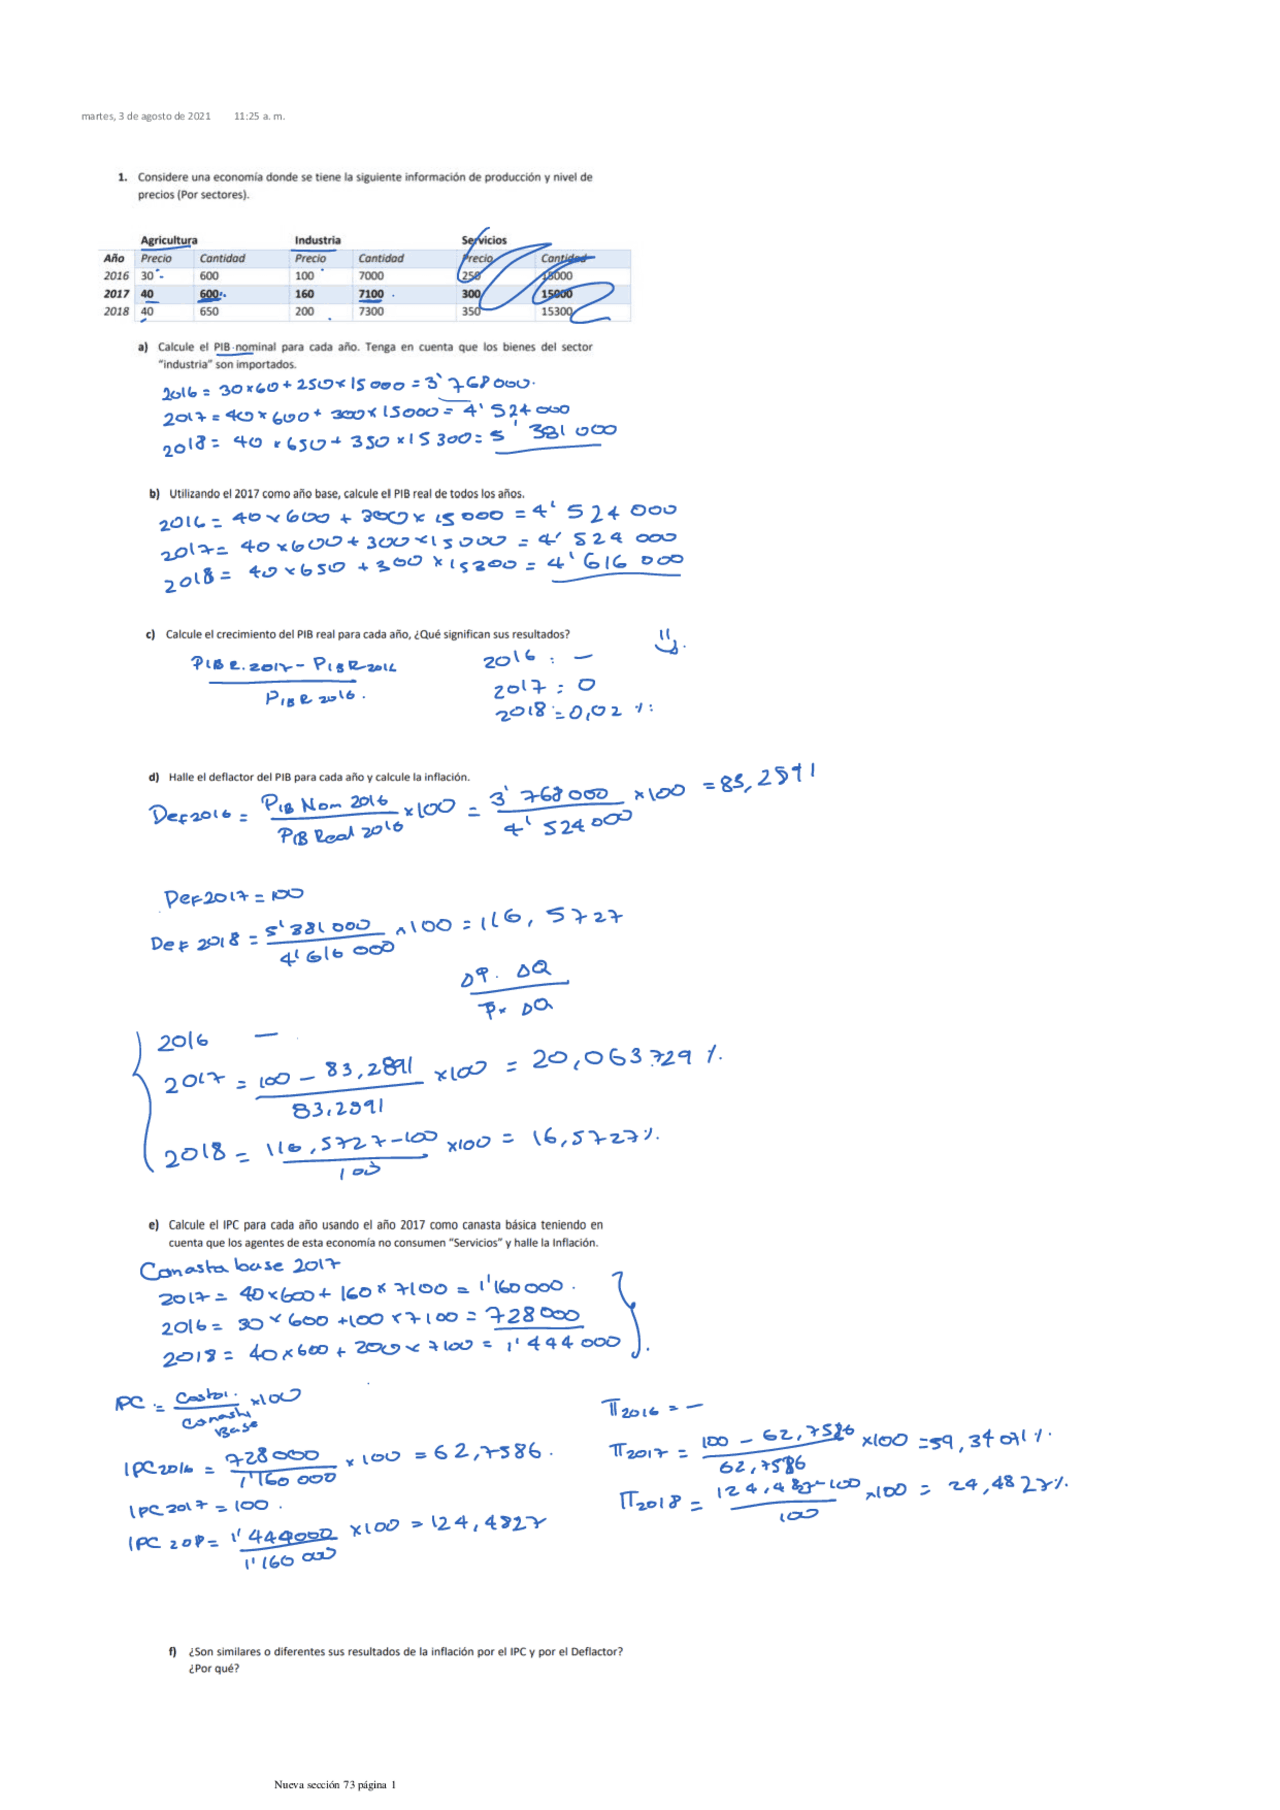 martes, 3 de agosto de 2021 11:25 a. m.
1. Considere una economía donde se tiene la siguiente información de producción y nivel de
precios (Por sectores).
Agricultura Industria Servicios
Año Precio Cantidad Precio Cantidad Precio Cantidad
2016 30 600 100 7000 250 15000
2017 40 600 160 7100 300 15000
2018 40 650 200 7300 350 15300
a) Calcule el PIB nominal para cada año. Tenga en cuenta que los bienes del sector
"industria" son importados.
2016 = 30×60 + 250×15000 = 3'768000.
2017 = 40×600 + 300×15000 = 4'524000
2018 = 40×650 + 350×15300 = 5'381000
b) Utilizando el 2017 como año base, calcule el PIB real de todos los años.
2016 = 40×600 + 300×15000 = 4'524000
2017 = 40×600 + 300×15000 = 4'524000
2018 = 40×650 + 300×15300 = 4'616000
c) Calcule el crecimiento del PIB real para cada año, ¿Qué significan sus resultados?
PIB R. 2017 - PIB R 2016
PIB R 2016.
2016: —
2017: 0
2018: = 0,02 %
d) Halle el deflactor del PIB para cada año y calcule la inflación.
Def 2016 = PIB Nom 2016 / PIB Real 2016 ×100 = 3'768000 / 4'524000 ×100 = 83,2891
Def 2017 = 100
Def 2018 = 5'381000 / 4'616000 ×100 = 116,5727
ΔP. ΔQ
P× ΔQ
2016 —
2017 = 100 - 83,2891 / 83,2891 ×100 = 20,063729 %.
2018 = 116,5727-100 / 100 ×100 = 16,5727%.
e) Calcule el IPC para cada año usando el año 2017 como canasta básica teniendo en
cuenta que los agentes de esta economía no consumen "Servicios" y halle la Inflación.
Canasta base 2017
2017 = 40×600 + 160×7100 = 1'160000.
2016 = 30×600 +100×7100 = 728000
2018 = 40×600 + 200×7100 = 1'444000
IPC = Costo. / Canasta Base ×100
IPC 2016 = 728000 / 1'160000 ×100 = 62,7586.
IPC 2017 = 100.
IPC 2018 = 1'444000 / 1'160000 ×100 = 124,4827
π2016 = —
π2017 = 100 - 62,7586 / 62,7586 ×100 = 59,34071%.
π2018 = 124,487-100 / 100 ×100 = 24,4827%.
f) ¿Son similares o diferentes sus resultados de la inflación por el IPC y por el Deflactor?
¿Por qué?
Nueva sección 73 página 1